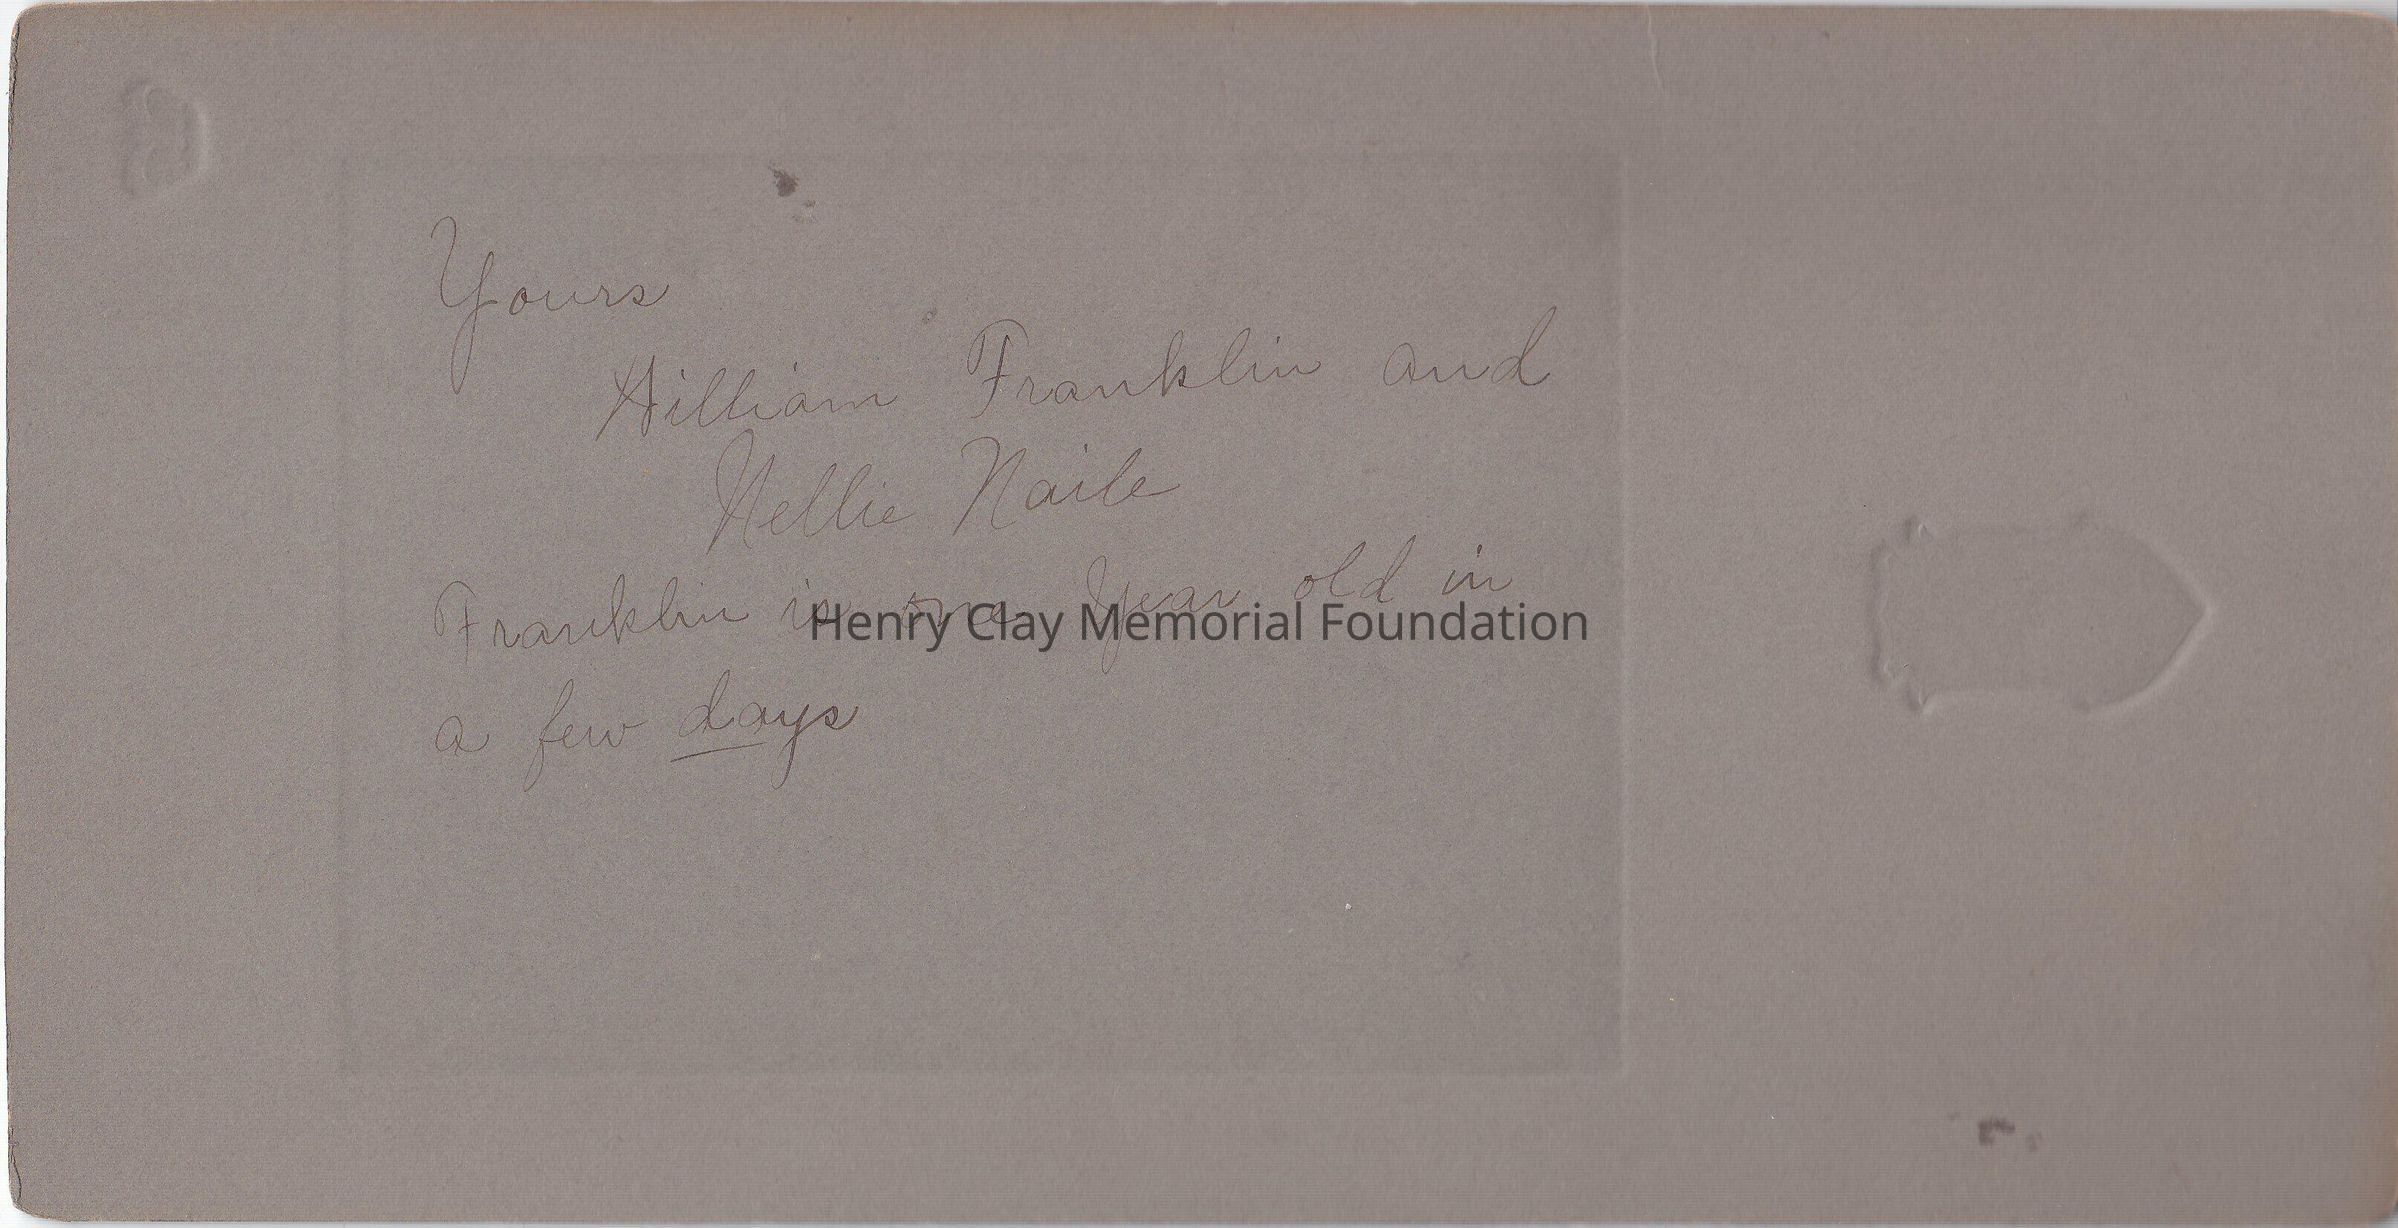 Yours
William Franklin and
Nellie Naile
Franklin is one Year old in
a few days
Henry Clay Memorial Foundation